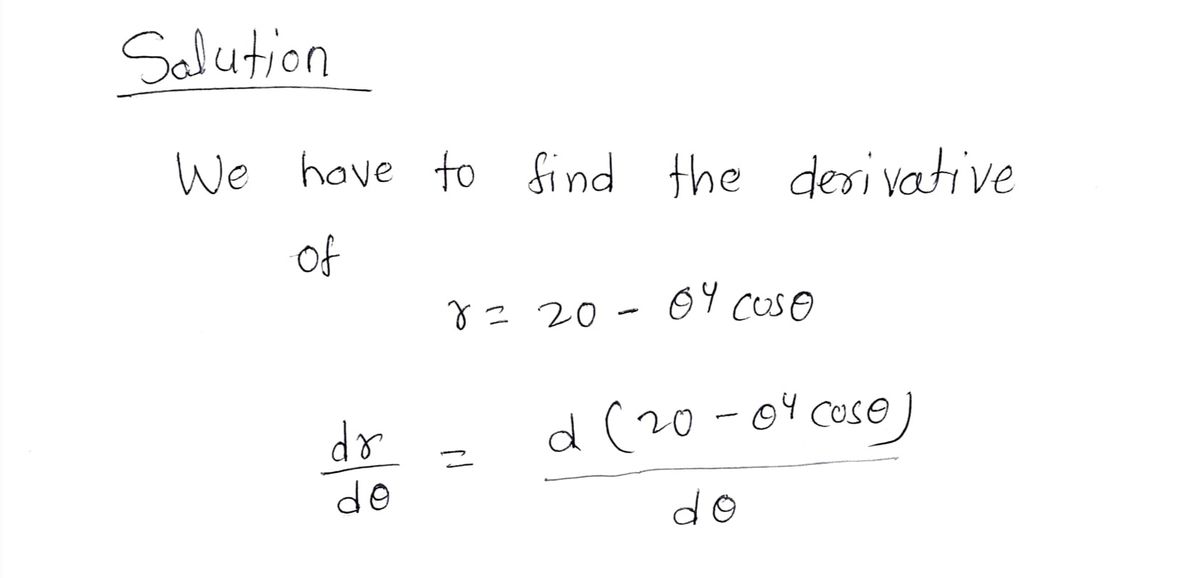 Solution
We have to find the derivative
of
r = 20 - θ⁴ cosθ
dr/dθ = d(20 - θ⁴ cosθ)/dθ